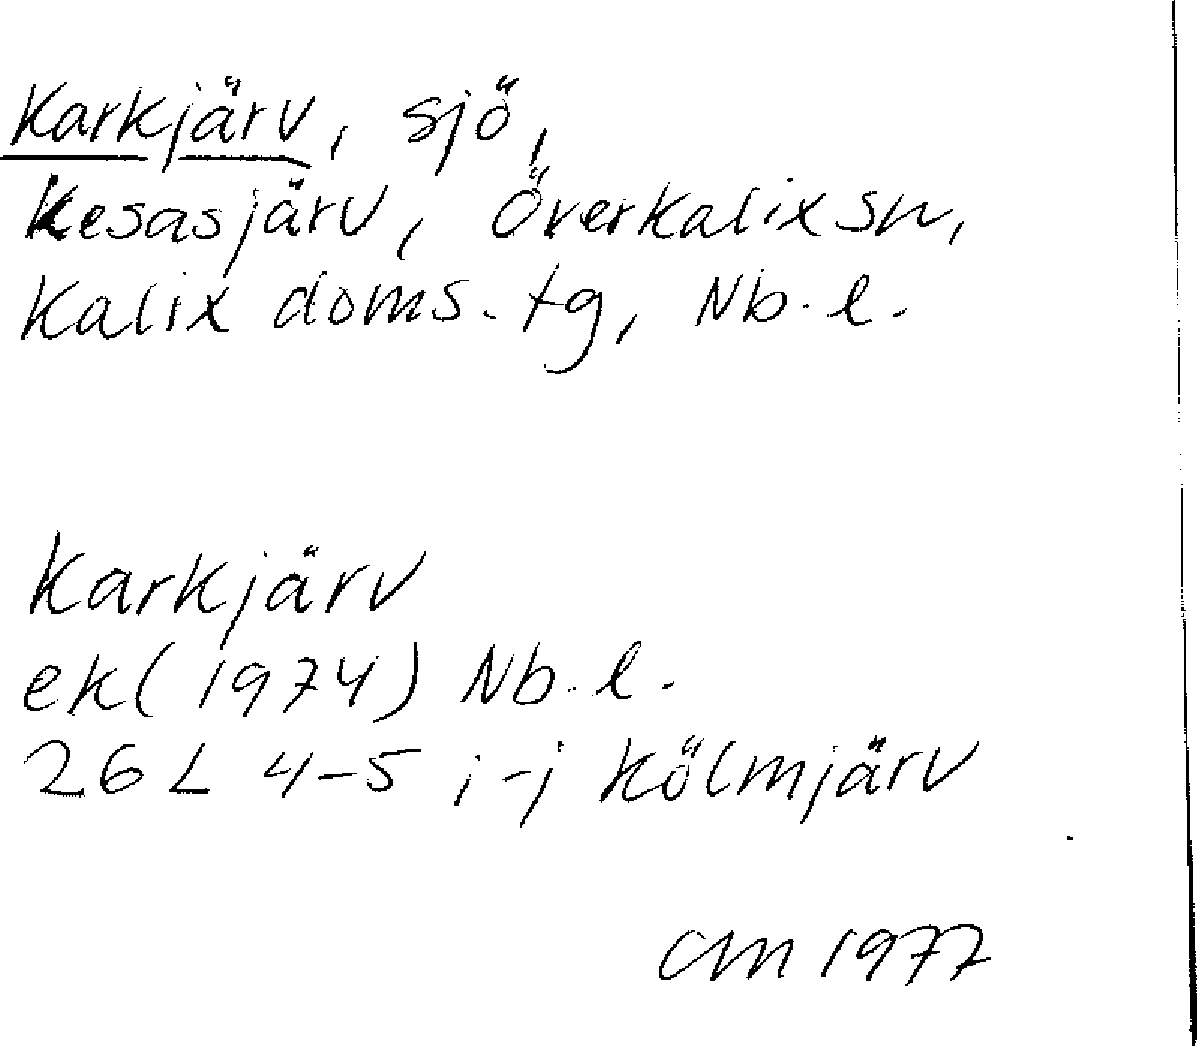 Karkjärv, sjö,
Kesasjärv, Överkalix sn,
Kalix doms.tg, Nb.l.
Karkjärv
ek(1974) Nb.l.
26 L 4-5 i-j Kölmjärv
CM 1977